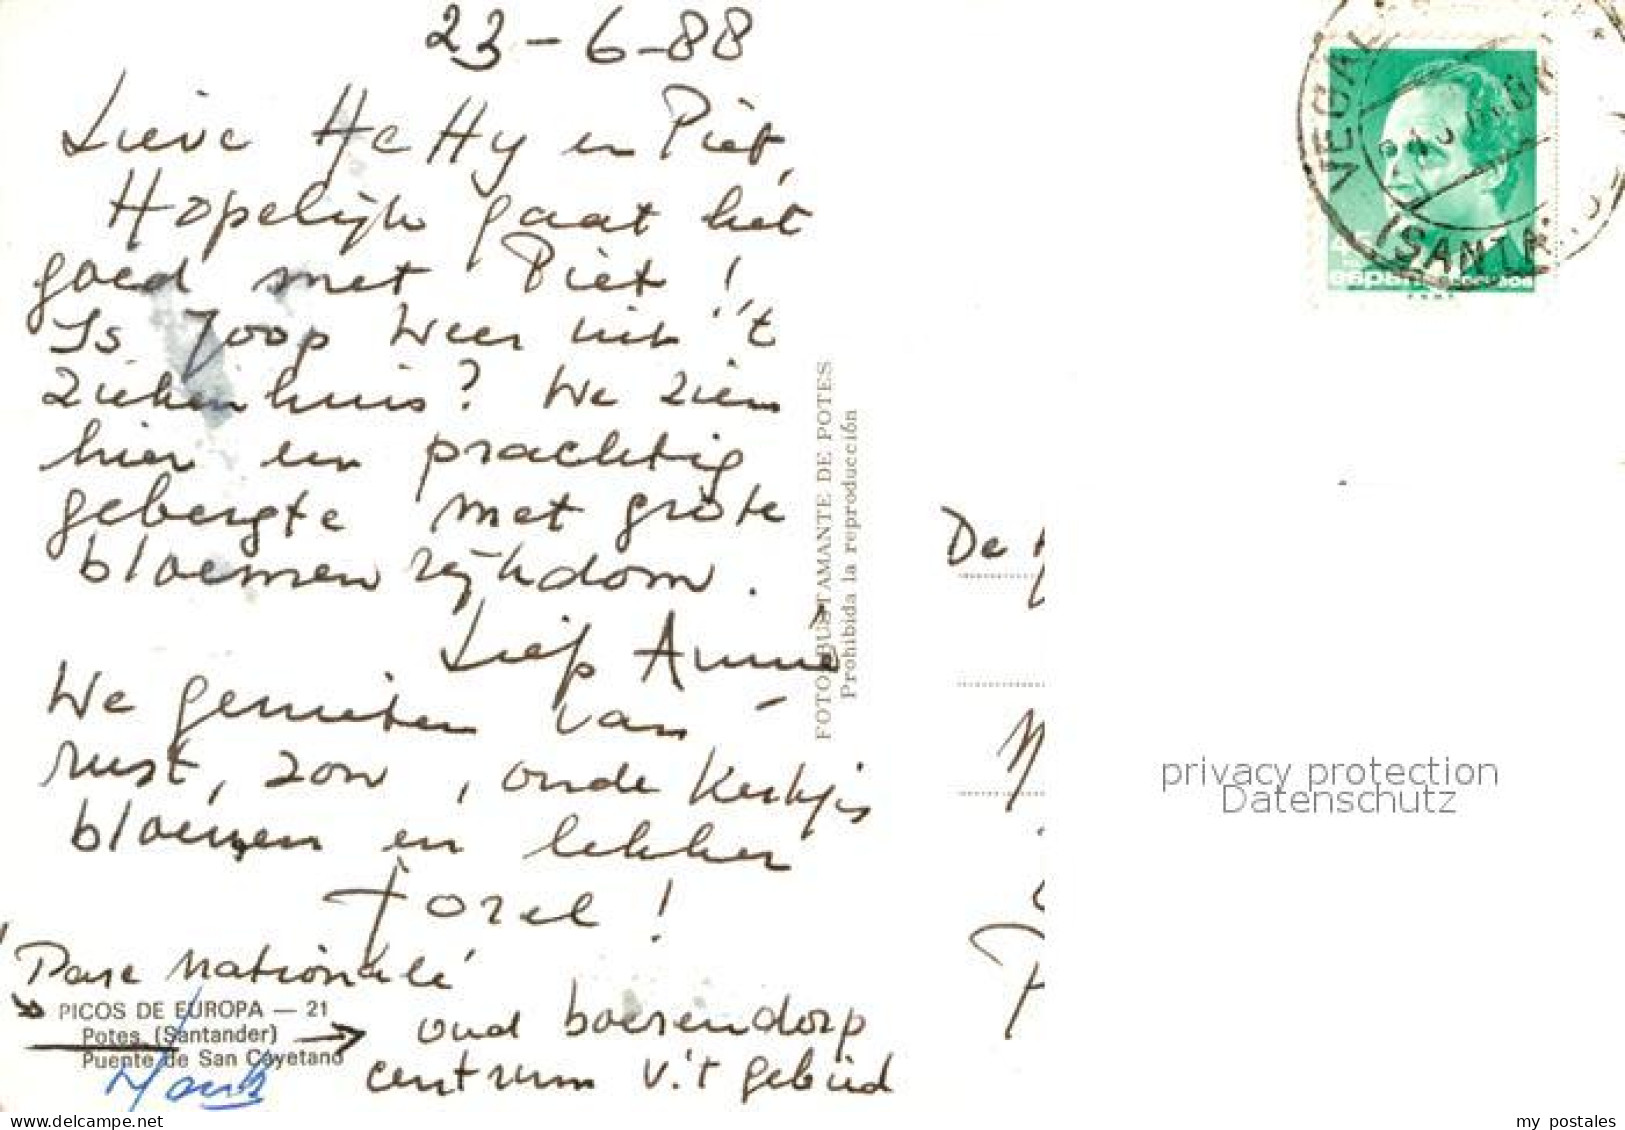 23-6-88
Lieve Hetty en Piet,
Hopelijk gaat het
goed met Piet!
Is Joop weer uit 't
ziekenhuis? We zien
hier een prachtig
gebergte met grote
bloemen rijkdom.
Liefs Annie
We genieten van
rust, zon, oude kerkjes
bloemen en lekker
forel!
Parc Nationale
PICOS DE EUROPA — 21
Potes (Santander)
Puente de San Cayetano
oud boerendorp
centrum v. 't gebied
FOTO BUSTAMANTE DE POTES
Prohibida la reproducción
De
45
España correos
(SANTA
privacy protection
Datenschutz
my postales